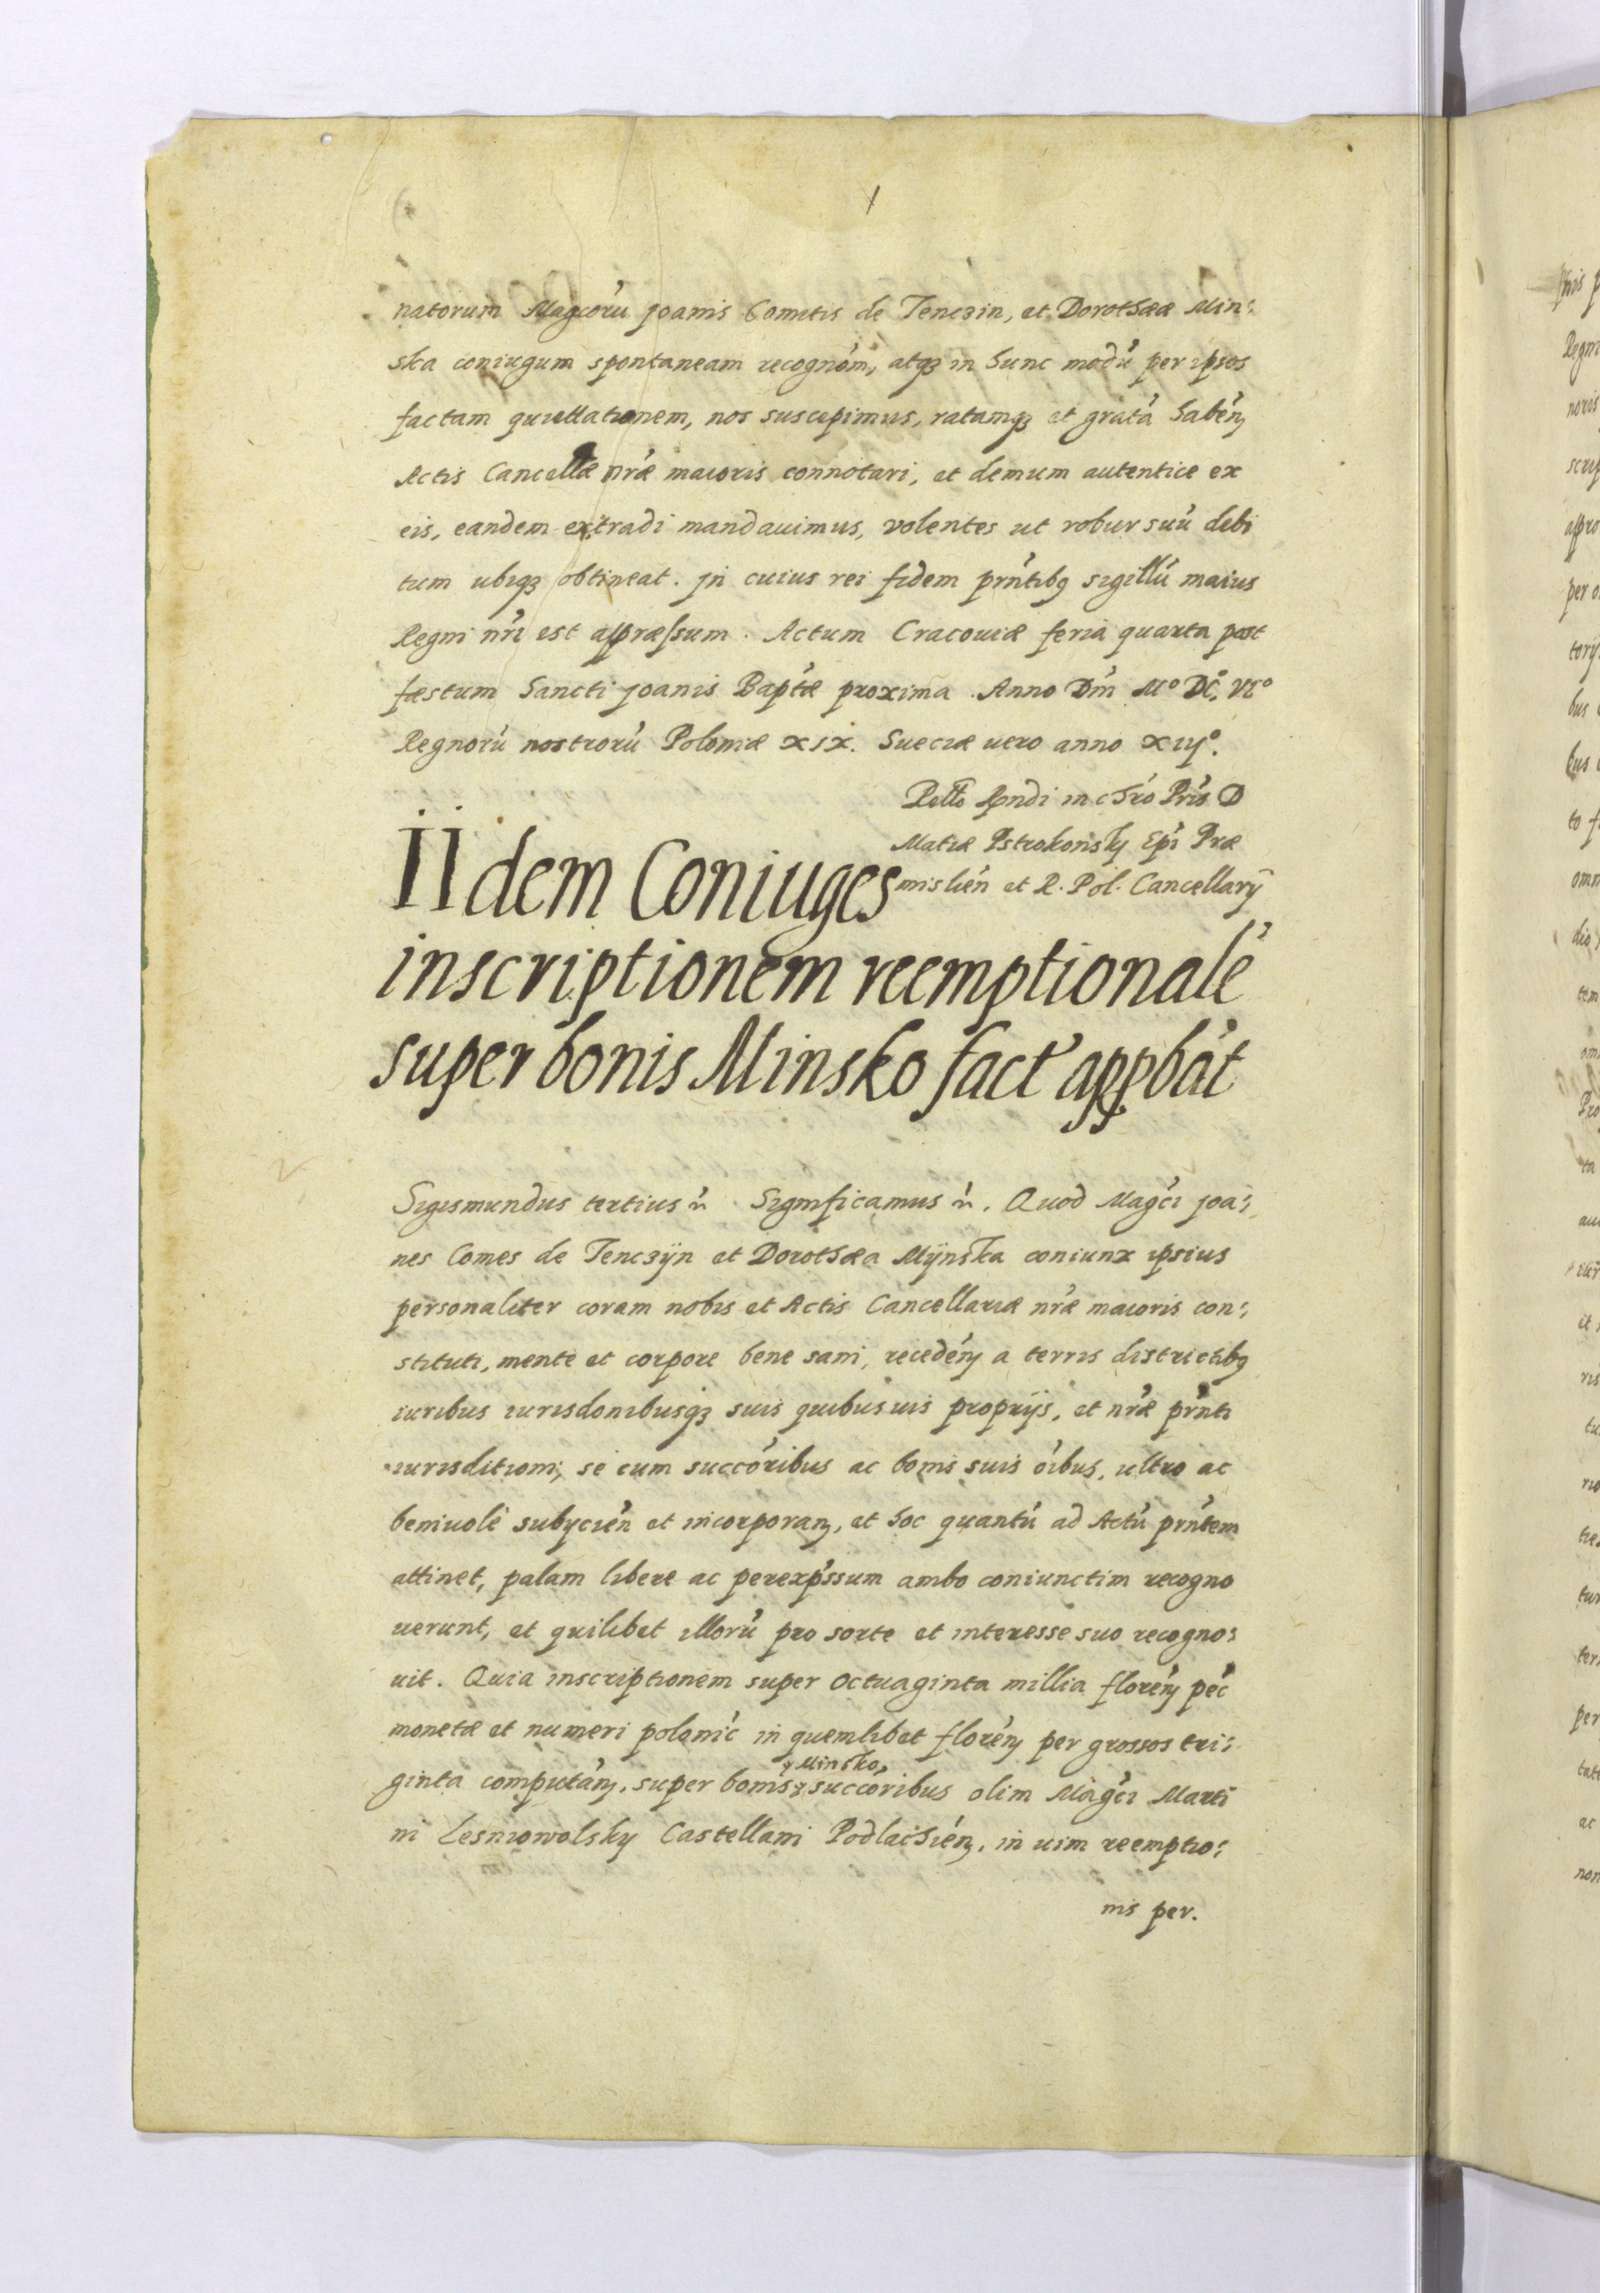 natorum Magcorú Joannis Comitis de Tenczin, et Dorothææ Min:
ska coniugum spontaneam recognóm, atq3 in hunc modú per ipsos
factam quiettationem, nos suscepimus, ratamq3 et gratá habéń
Actis Cancellæ nræ maioris connotari, et demum autentice ex
eis, eandem extradi mandauimus, volentes ut robur suú debi
tum ubiq3 obtineat. Jn cuius rei fidem pńtibq sigillú maius
Regni nri est appræssum. Actum Cracouiæ feria quarta post
fæstum Sancti Joanis Baptæ proxima. Anno Dńi Mº DCº. VIº
Regnorú nostrorú Poloniæ XIX. Sueciæ uero anno XIIJº.
Rello Rndi in chro Pris D
Matiæ Pstrokonsky Epi Præ
mislień et R. Pol. Cancellarÿ
IIdem Coniuges
inscriptionem reemptionalé
super bonis Minsko fact' appbát
Sigismundus tertius ẃ. Significamus ẃ. Quod Magci Joa:
nes Comes de Tenczÿn et Dorothæa Mÿnska coniunx ipsius
personaliter coram nobis et Actis Cancellariæ nræ maioris con:
stituti, mente et corpore bene sani, recedéń a terris districtibq
iuribus iurisdonibusq3 suis quibusuis proprijs, et nræ prńti
iurisditioni, se cum succoribus ac bonis suis óibus, ultro ac
beniuolé subycień et incorporań, et hoc quantú ad Actú prńtem
attinet, palam libere ac perexpssum ambo coniunctim recogno
uerunt, et quilibet illorú pro sorte et interesse suo recogno:
uit. Quia inscriptionem super octuaginta millia floréń péc
monetæ et numeri polonić in quemlibet floréń per grossos tri:
ginta computáń, super bonis
Minsko
succoribus olim Magci Marti
ni Lesniowolsky Castellani Podlachiéń, in uim reemptio:
nis per.